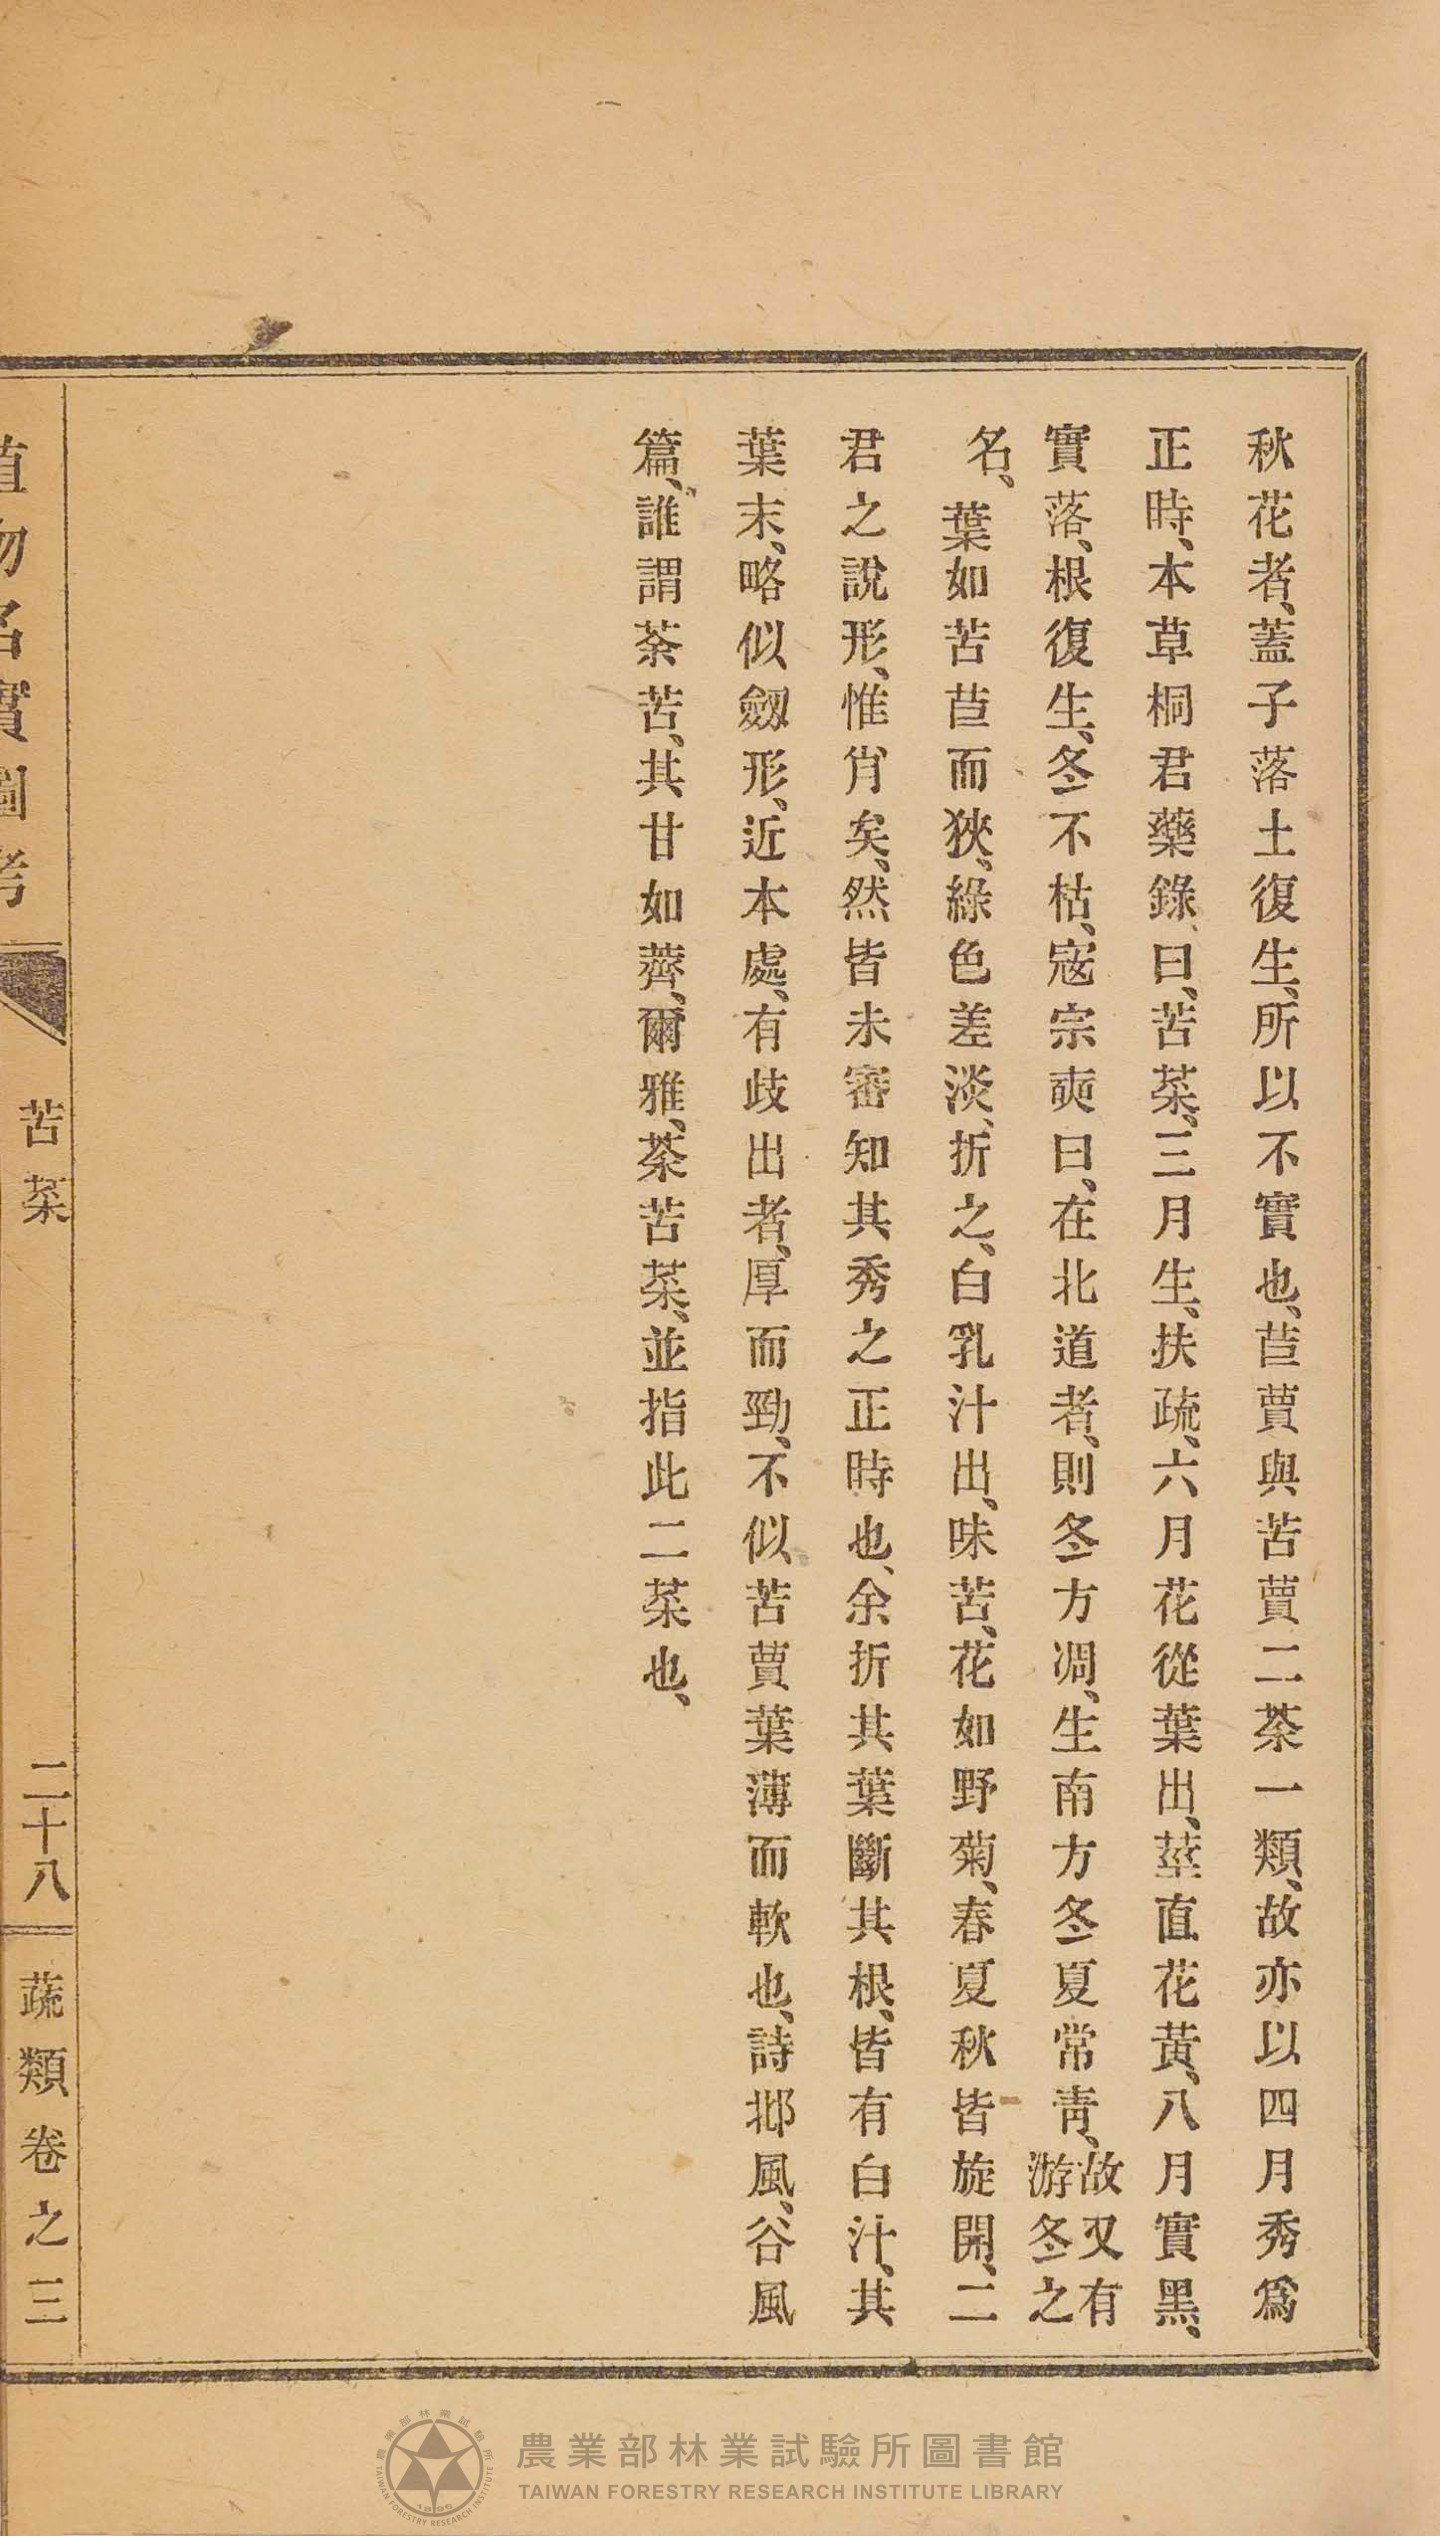 秋花者、蓋子落土復生、所以不實也、苣蕒與苦蕒二茶一類、故亦以四月秀爲
正時、本草桐君藥錄曰、苦菜、三月生、扶疏、六月花從葉出、莖直花黃、八月實黑、
實落、根復生、冬不枯、寇宗奭曰、在北道者、則冬方凋、生南方冬夏常青、故又有游冬之
名、葉如苦苣而狹、綠色差淡、折之、白乳汁出、味苦、花如野菊、春夏秋皆旋開、二
君之說形、惟肖矣、然皆未審知其秀之正時也、余折其葉斷其根、皆有白汁、其
葉末、略似劒形、近本處、有歧出者、厚而勁、不似苦蕒葉薄而軟也、詩邶風、谷風
篇、誰謂荼苦、其甘如薺、爾雅、荼苦菜、並指此二菜也、
植物名實圖考 苦菜 二十八 蔬類卷之三
農業部林業試驗所圖書館
TAIWAN FORESTRY RESEARCH INSTITUTE LIBRARY
農業部林業試驗所
TAIWAN FORESTRY RESEARCH INSTITUTE
1896